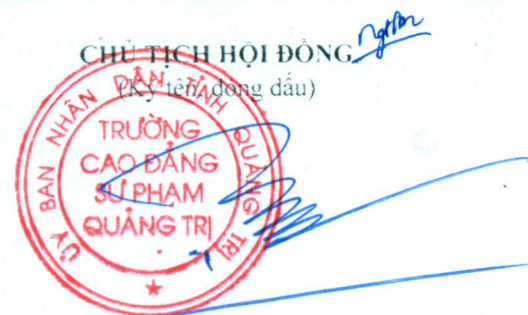 CHỦ TỊCH HỘI ĐỒNG
(Ký tên, đóng dấu)
ỦY BAN NHÂN DÂN TỈNH QUẢNG TRỊ
TRƯỜNG
CAO ĐẲNG
SƯ PHẠM
QUẢNG TRỊ